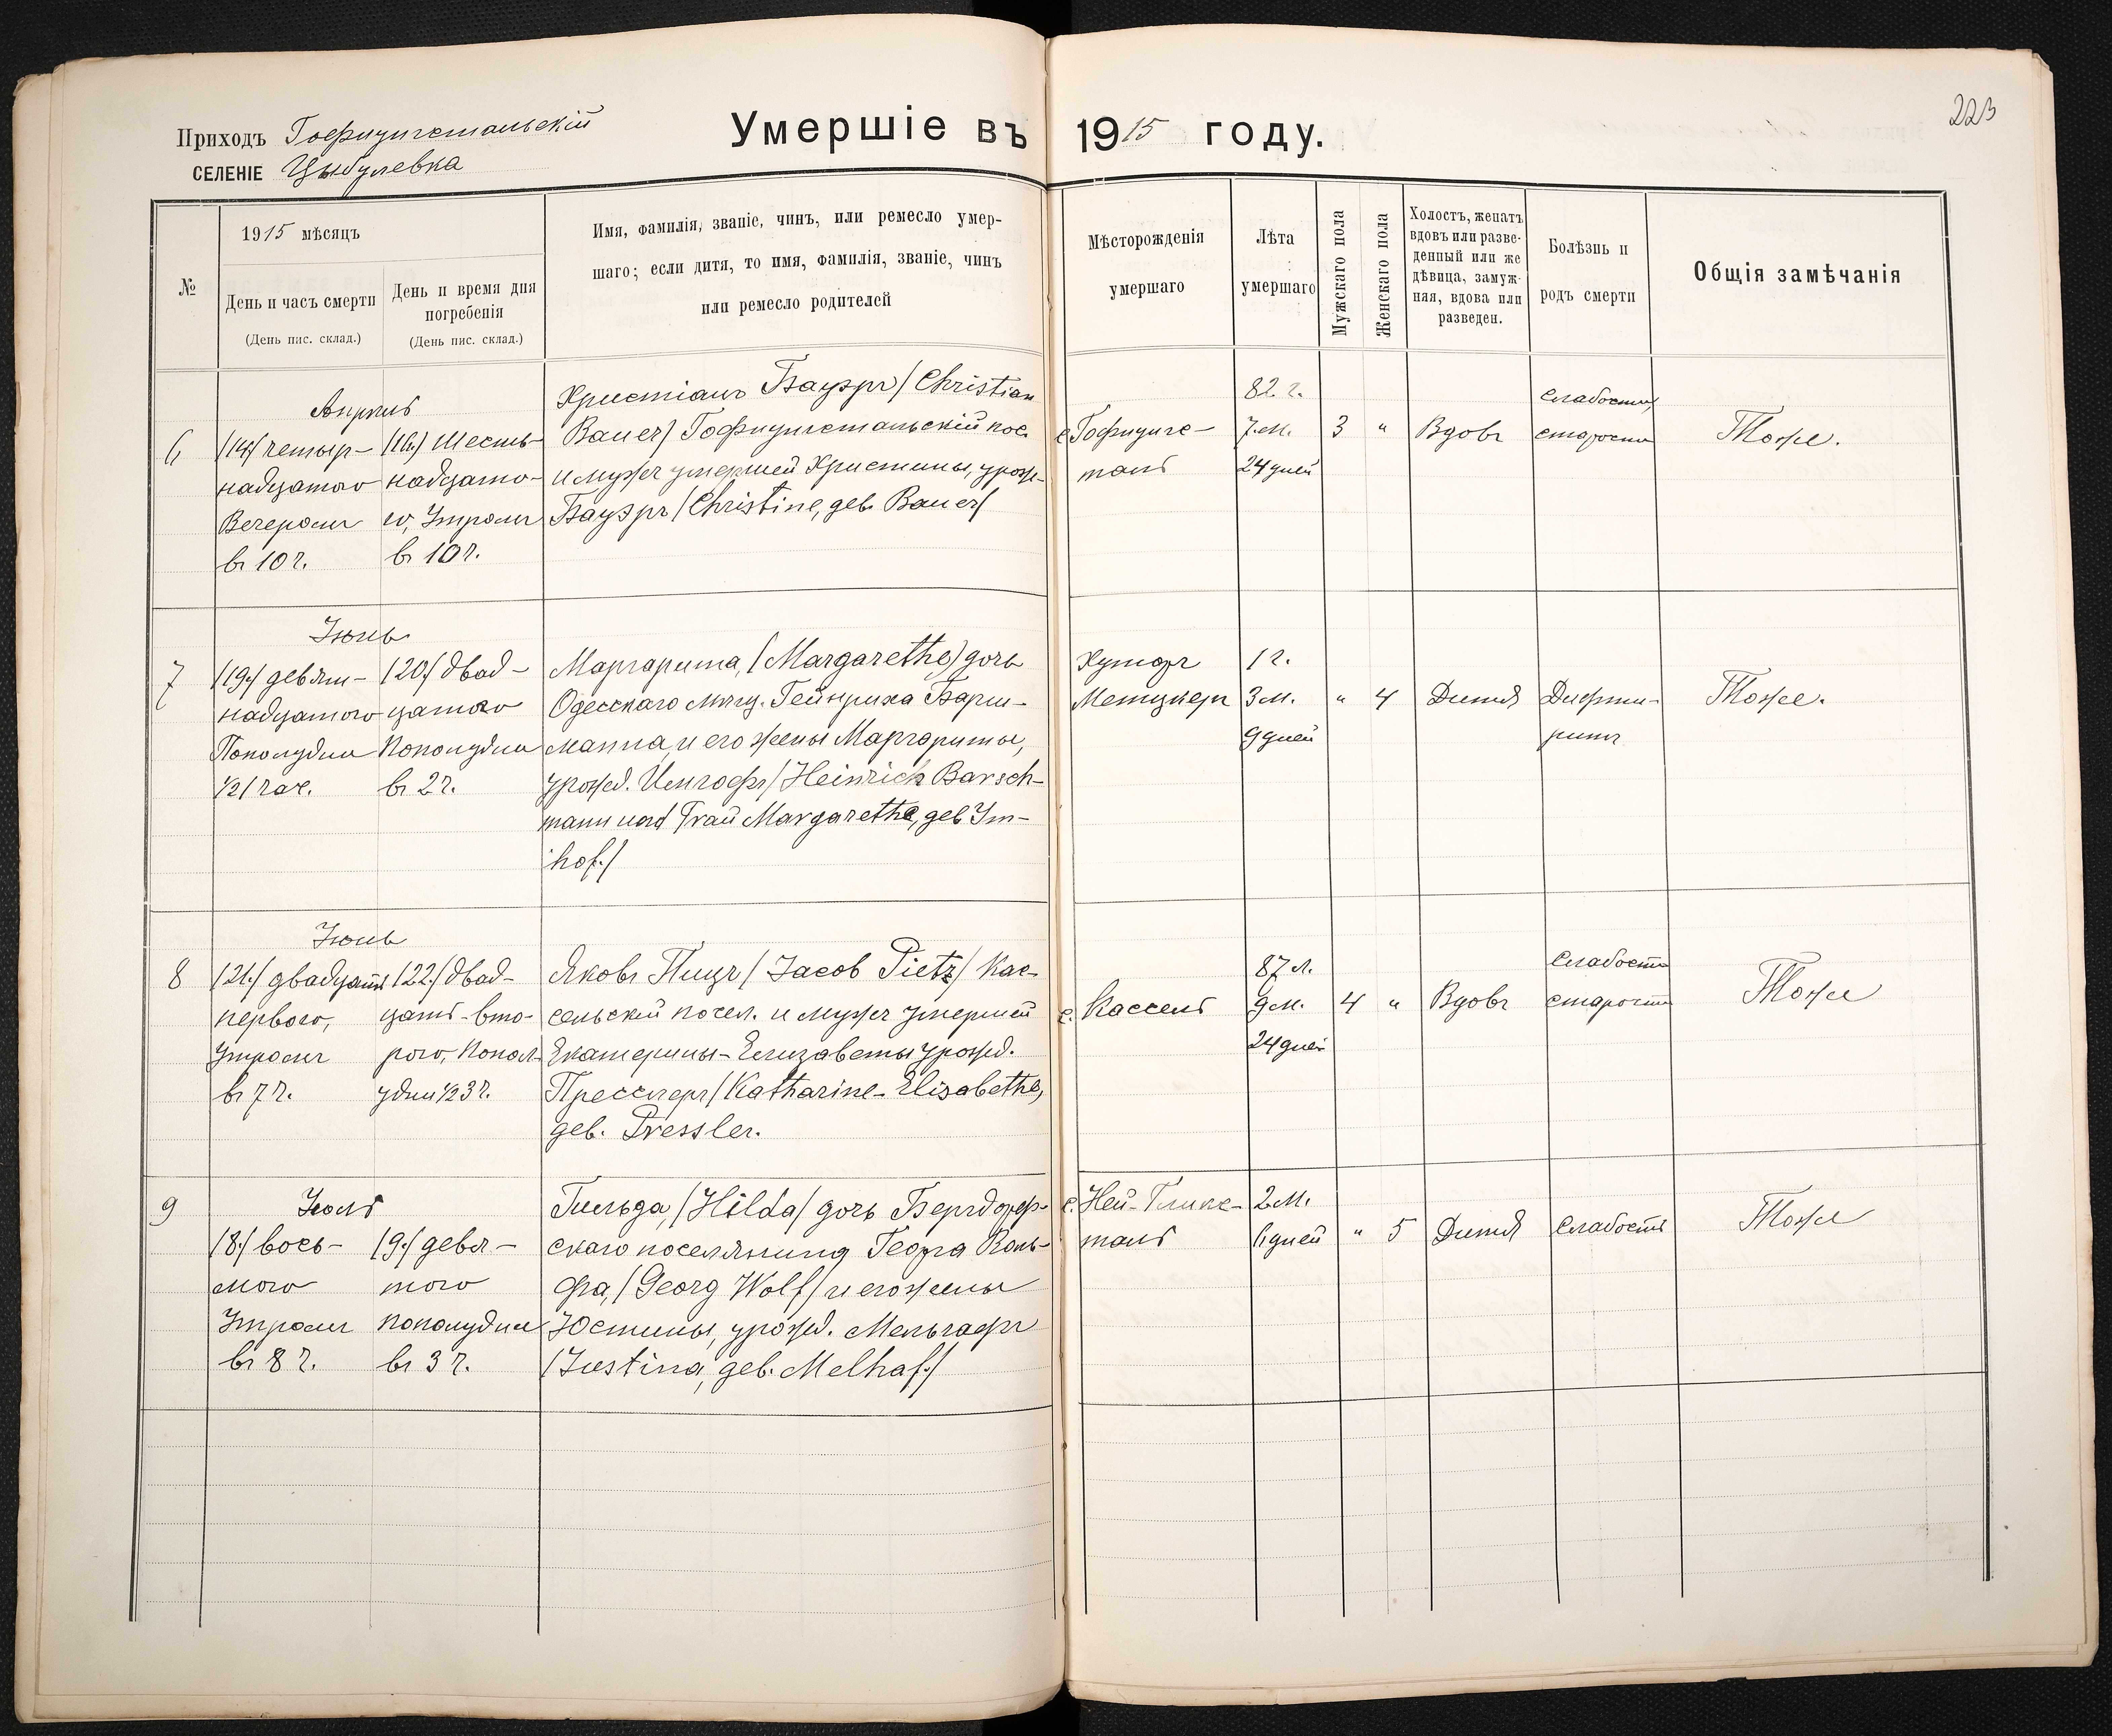 223
Приходъ Гофнунгстальскій
СЕЛЕНІЕ Цыбулевка
Умершіе въ 1915 году.
№
1915 мѣсяцъ
День и часъ смерти
(День пис. склад.)
День и время дня
погребенія
(День пис. склад.)
Имя, фамилія, званіе, чинъ, или ремесло умер-
шаго; если дитя, то имя, фамилія, званіе, чинъ
или ремесло родителей
Мѣсторожденія
умершаго
Лѣта
умершаго
Мужскаго пола
Женскаго пола
Холостъ, женатъ
вдовъ или разве-
денный или же
дѣвица, замуж-
няя, вдова или
разведен.
Болѣзнь и
родъ смерти
Общія замѣчанія
6
Апрѣль
/14/ четыр-
надцатого
Вечеромъ
въ 10 ч.
/16./ Шесть-
надцато-
го, Утромъ
въ 10 ч.
Христіанъ Бауэръ / Christian
Bauer / Гофнунгстальскій пос.
и мужъ умершей Христины, урож.
Бауэръ / Christine, geb. Bauer /
с. Гофнунгс-
таль
82 г.
7 м.
24 дней
3
"
Вдовъ
Слабость,
старости
Тоже.
7
Іюнь
/19./ девят-
надцатого
Пополудни
1/2 1 час.
/20./ двад-
цатого
Пополудни
въ 2 ч.
Маргарита, / Margarethe) дочь
Одесскаго мѣщ. Гейнриха Барш-
манна, и его жены Маргариты,
урожд. Имгофъ / Heinrich Barsch-
mann und Frau Margarethe, geb. Im-
hof. /
Хуторъ
Метцгеръ
1 г.
3 м.
9 дней
"
4
Дитя
Дифте-
ритъ
Тоже.
8
Іюнь
/21./ двадцать
первого,
Утромъ
въ 7 ч.
/22./ двад-
цать-вто-
рого, Попол-
удни 1/2 3 ч.
Яковъ Пицъ / Jacob Pietz / Кас-
сельскій посел. и мужъ умершей
Екатерины-Елизаветы урожд.
Пресслеръ / Katharine-Elisabethe,
geb. Pressler.
с. Кассель
87 л.
9 м.
24 дней
4
"
Вдовъ
Слабость
старости
Тоже
9
Іюль
/8./ вось-
мого
Утромъ
въ 8 ч.
/9./ девя-
того
пополудни
въ 3 ч.
Гильда, / Hilda / дочь Бергдорф-
скаго поселянина Георга Воль-
фа, / Georg Wolf / и его жены
Юстины, урожд. Мельгафъ
/ Justina, geb. Melhaf. /
с. Ней-Глюкс-
таль
2 м.
6 дней
"
5
Дитя
Слабость
Тоже